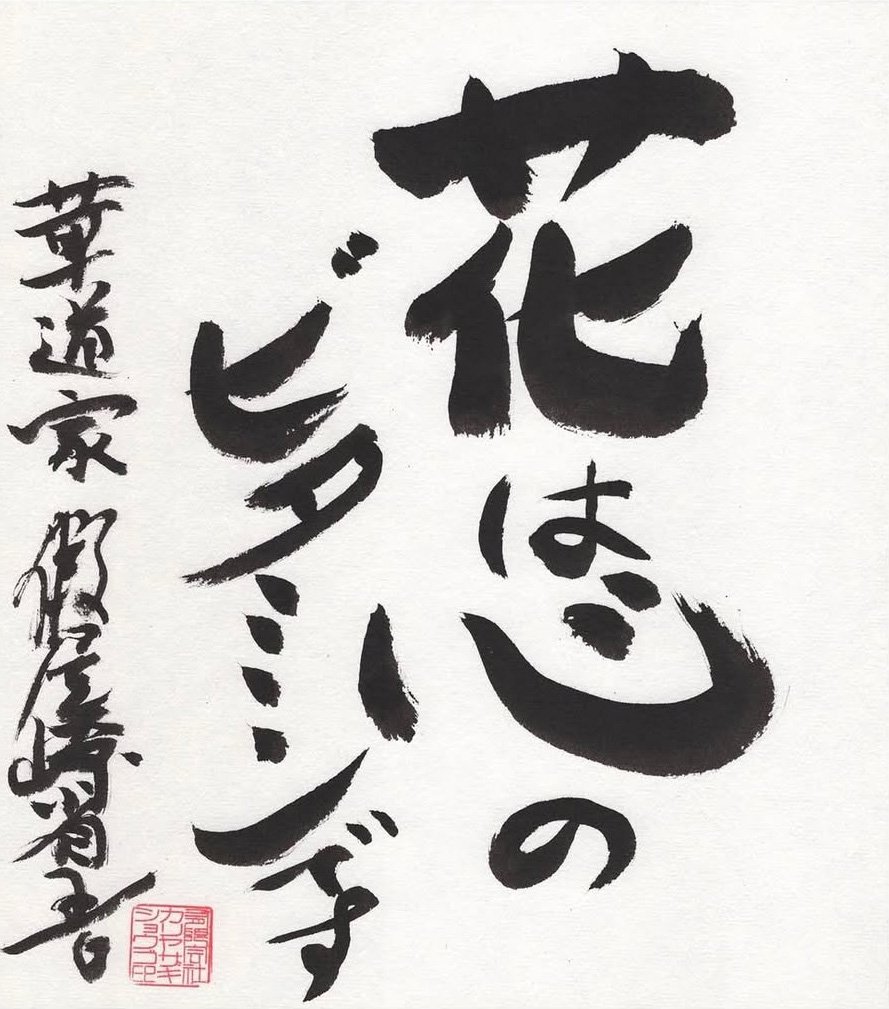 花は心の
ビタミンです
華道家 假屋崎省吾
有限会社
カリヤザキ
ショウゴ印